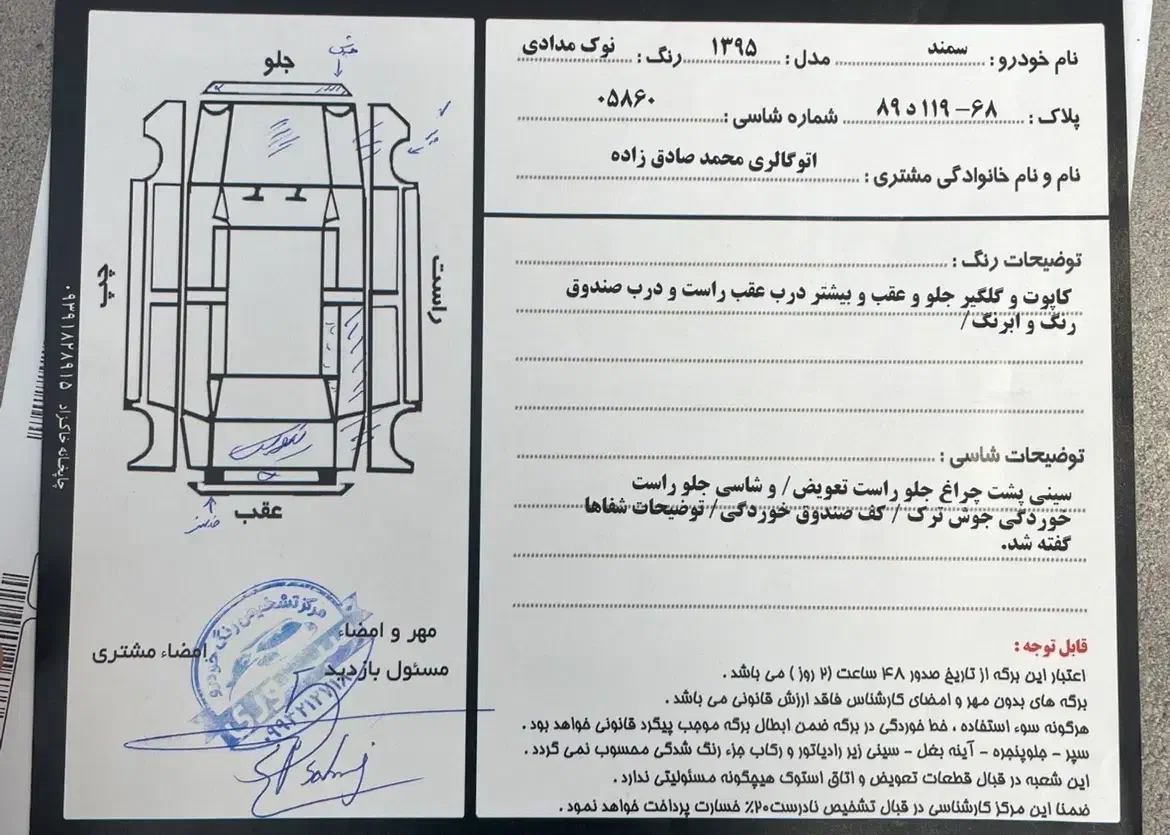 نام خودرو : سمند مدل : ۱۳۹۵ رنگ : نوک مدادی
پلاک : ۶۸-۱۱۹د۸۹ شماره شاسی : ۰۵۸۶۰
نام و نام خانوادگی مشتری : اتوگالری محمد صادق زاده
توضیحات رنگ :
کاپوت و گلگیر جلو و عقب و بیشتر درب عقب راست و درب صندوق
رنگ و ابرنگ/
توضیحات شاسی :
سینی پشت چراغ جلو راست تعویض/ و شاسی جلو راست
خوردگی جوش ترک / کف صندوق خوردگی/ توضیحات شفاها
گفته شد.
قابل توجه :
اعتبار این برگه از تاریخ صدور ۴۸ ساعت (۲ روز) می باشد .
برگه های بدون مهر و امضای کارشناس فاقد ارزش قانونی می باشد .
هرگونه سوء استفاده ، خط خوردگی در برگه ضمن ابطال برگه موجب پیگرد قانونی خواهد بود .
سپر - جلوپنجره - آینه بغل - سینی زیر رادیاتور و رکاب جزء رنگ شدگی محسوب نمی گردد .
این شعبه در قبال قطعات تعویض و اتاق استوک هیچگونه مسئولیتی ندارد .
ضمنا این مرکز کارشناسی در قبال تشخیص نادرست۲۰٪ خسارت پرداخت خواهد نمود .
جلو
چپ
راست
عقب
مهر و امضاء
مسئول بازدید
امضاء مشتری
مرکز تشخیص رنگ خودرو
چاپخانه خاکزاد ۰۹۳۹۱۸۲۸۹۱۵